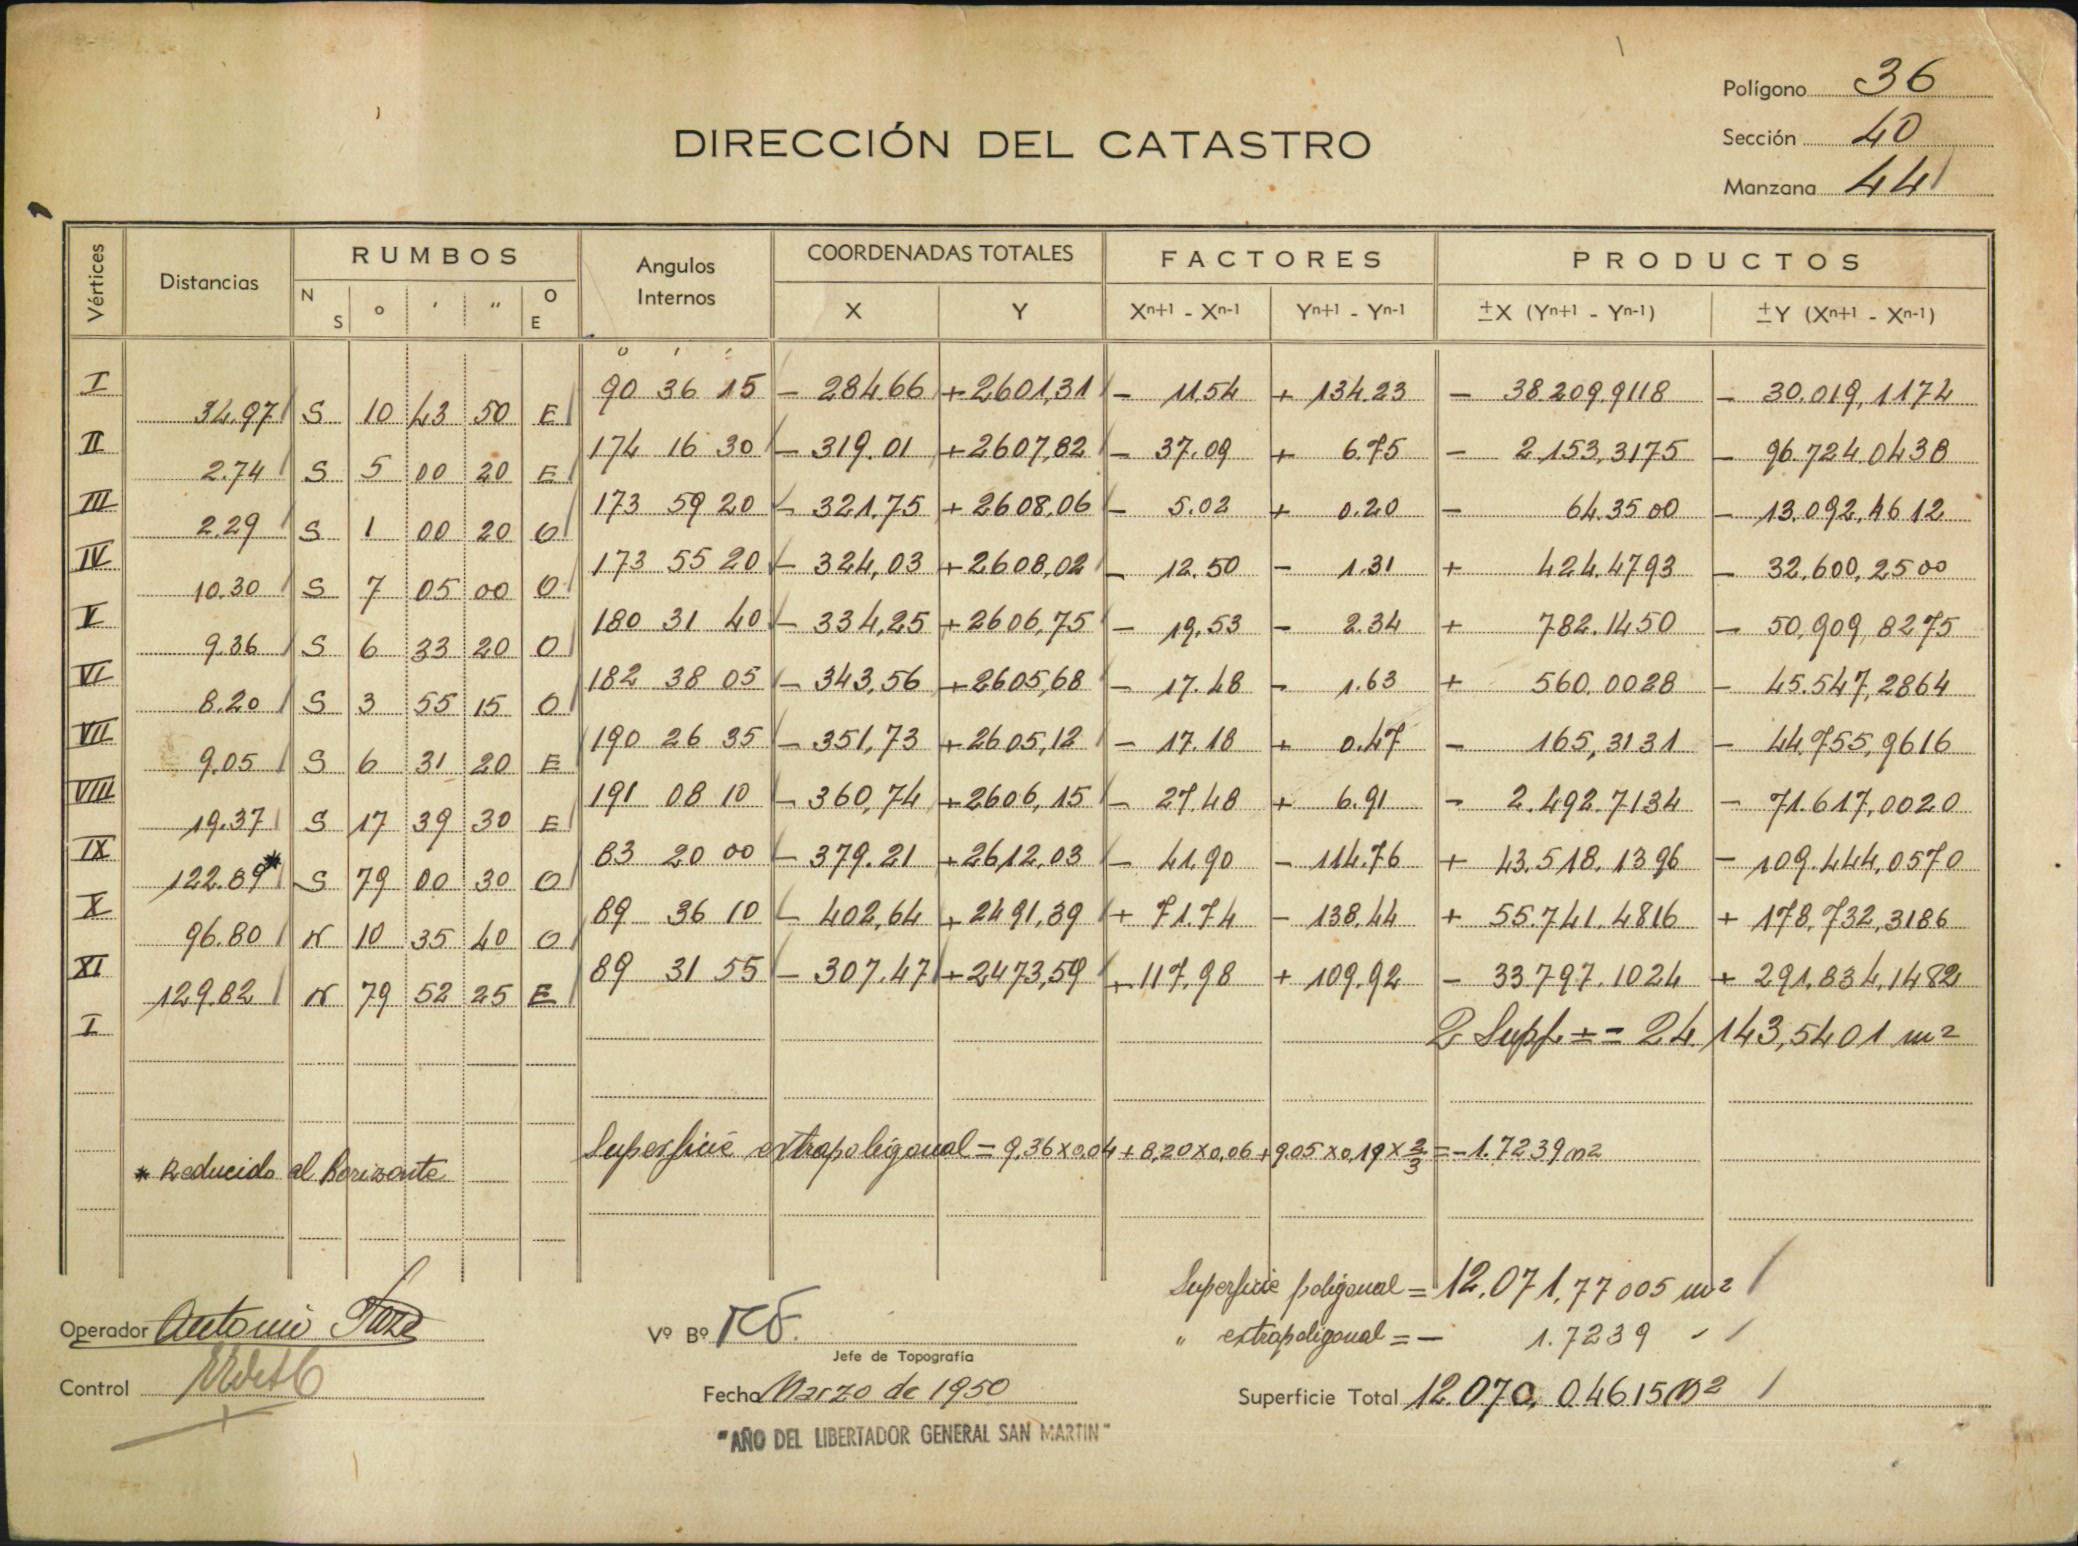 Polígono 36
Sección 40
Manzana 44
DIRECCIÓN DEL CATASTRO
Vértices Distancias RUMBOS Angulos Internos COORDENADAS TOTALES FACTORES PRODUCTOS
N S ° ' " O E X Y Xn+1 - Xn-1 Yn+1 - Yn-1 ±X (Yn+1 - Yn-1) ±Y (Xn+1 - Xn-1)
° ' "
I 90 36 15 - 284.66 + 2601,31 - 11.54 + 134.23 - 38.209.9118 - 30.019,1174
34.97 S 10 43 50 E
II 174 16 30 - 319.01 + 2607,82 - 37.09 + 6.75 - 2.153,3175 - 96.724.0438
2.74 S 5 00 20 E
III 173 59 20 - 321.75 + 2608,06 - 5.02 + 0.20 - 64.3500 - 13.092,4612
2.29 S 1 00 20 O
IV 173 55 20 - 324,03 + 2608,02 - 12.50 - 1.31 + 424.4793 - 32.600,2500
10.30 S 7 05 00 O
V 180 31 40 - 334,25 + 2606,75 - 19,53 - 2.34 + 782.1450 - 50,909,8275
9.36 S 6 33 20 O
VI 182 38 05 - 343,56 + 2605,68 - 17.48 - 1.63 + 560.0028 - 45.547,2864
8.20 S 3 55 15 O
VII 190 26 35 - 351,73 + 2605,12 - 17.18 + 0.47 - 165,3131 - 44,755,9616
9.05 S 6 31 20 E
VIII 191 08 10 - 360,74 + 2606,15 - 27.48 + 6.91 - 2.492.7134 - 71.617,0020
19.37 S 17 39 30 E
IX 83 20 00 - 379.21 + 2612,03 - 41.90 - 114.76 + 43.518.1396 - 109.444,0570
122.89* S 79 00 30 O
X 89 36 10 - 402,64 + 2491,39 + 71.74 - 138,44 + 55.741.4816 + 178,732,3186
96.80 N 10 35 40 O
XI 89 31 55 - 307.47 + 2473,59 + 117,98 + 109.92 - 33.797.1024 + 291.834,1482
129.82 N 79 52 25 E
I 2 Supf. ± = 24.143,5401 m2
Superficie extrapoligonal = 9,36 x 0,04 + 8,20 x 0,06 + 9.05 x 0,19 x 2/3 = - 1.7239 m2
* Reducido al horizonte
Superficie poligonal = 12.071,77005 m2
" extrapoligonal = - 1.7239 "
Operador Antonio
Vº Bº
Jefe de Topografía
Control
Fecha Marzo de 1950
Superficie Total 12.070, 04615 m2
"AÑO DEL LIBERTADOR GENERAL SAN MARTIN"